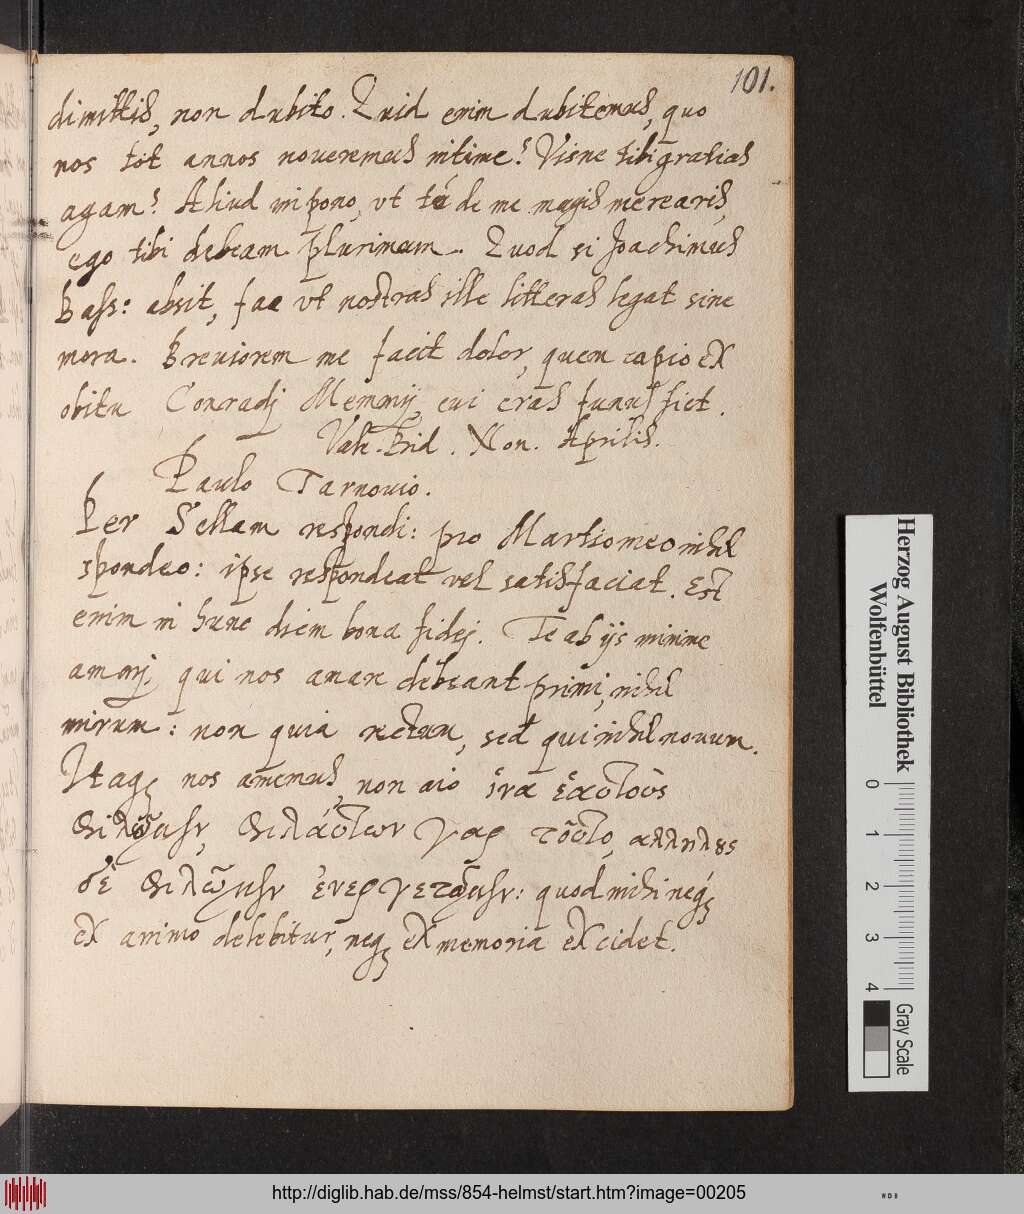 101.
dimittis, non dubito. Quid enim dubitemus, quo
nos tot annos noueremus intime? Visne tibi gratias
agam? Aliud impono, vt tu de me magis merearis,
ego tibi debeam plurimum. Quod si Joachimus
Bass: absit, fac vt nostras ille litteras legat sine
mora. Breuiorem me facit dolor, quem capio ex
obitu Conradj Memmij, cui cras funus fiet.
Vale. Brid. Non. Aprilis.
Paulo Tarnouio.
Per Sellam respondi: pro Martiomeo nihil
spondeo: ipse respondeat vel satisfaciat. Est
enim in hunc diem bona fidej. Te ab ijs minime
amarj, qui nos amare debeant primi, nihil
mirum: non quia rectum, sed qui nihil nouum.
Itaq; nos amemus, non aio ἵνα ἑαυτοὺς
φιλῶμεν, φιλάυτων γαρ τοῦτο, αλλήλους
δὲ φιλῶμεν ἐυεργετῶμεν: quod mihi neq;
ex animo delebitur, neq; ex memoria excidet.
Herzog August Bibliothek
Wolfenbüttel
0 1 2 3 4
Gray Scale
http://diglib.hab.de/mss/854-helmst/start.htm?image=00205
WDB